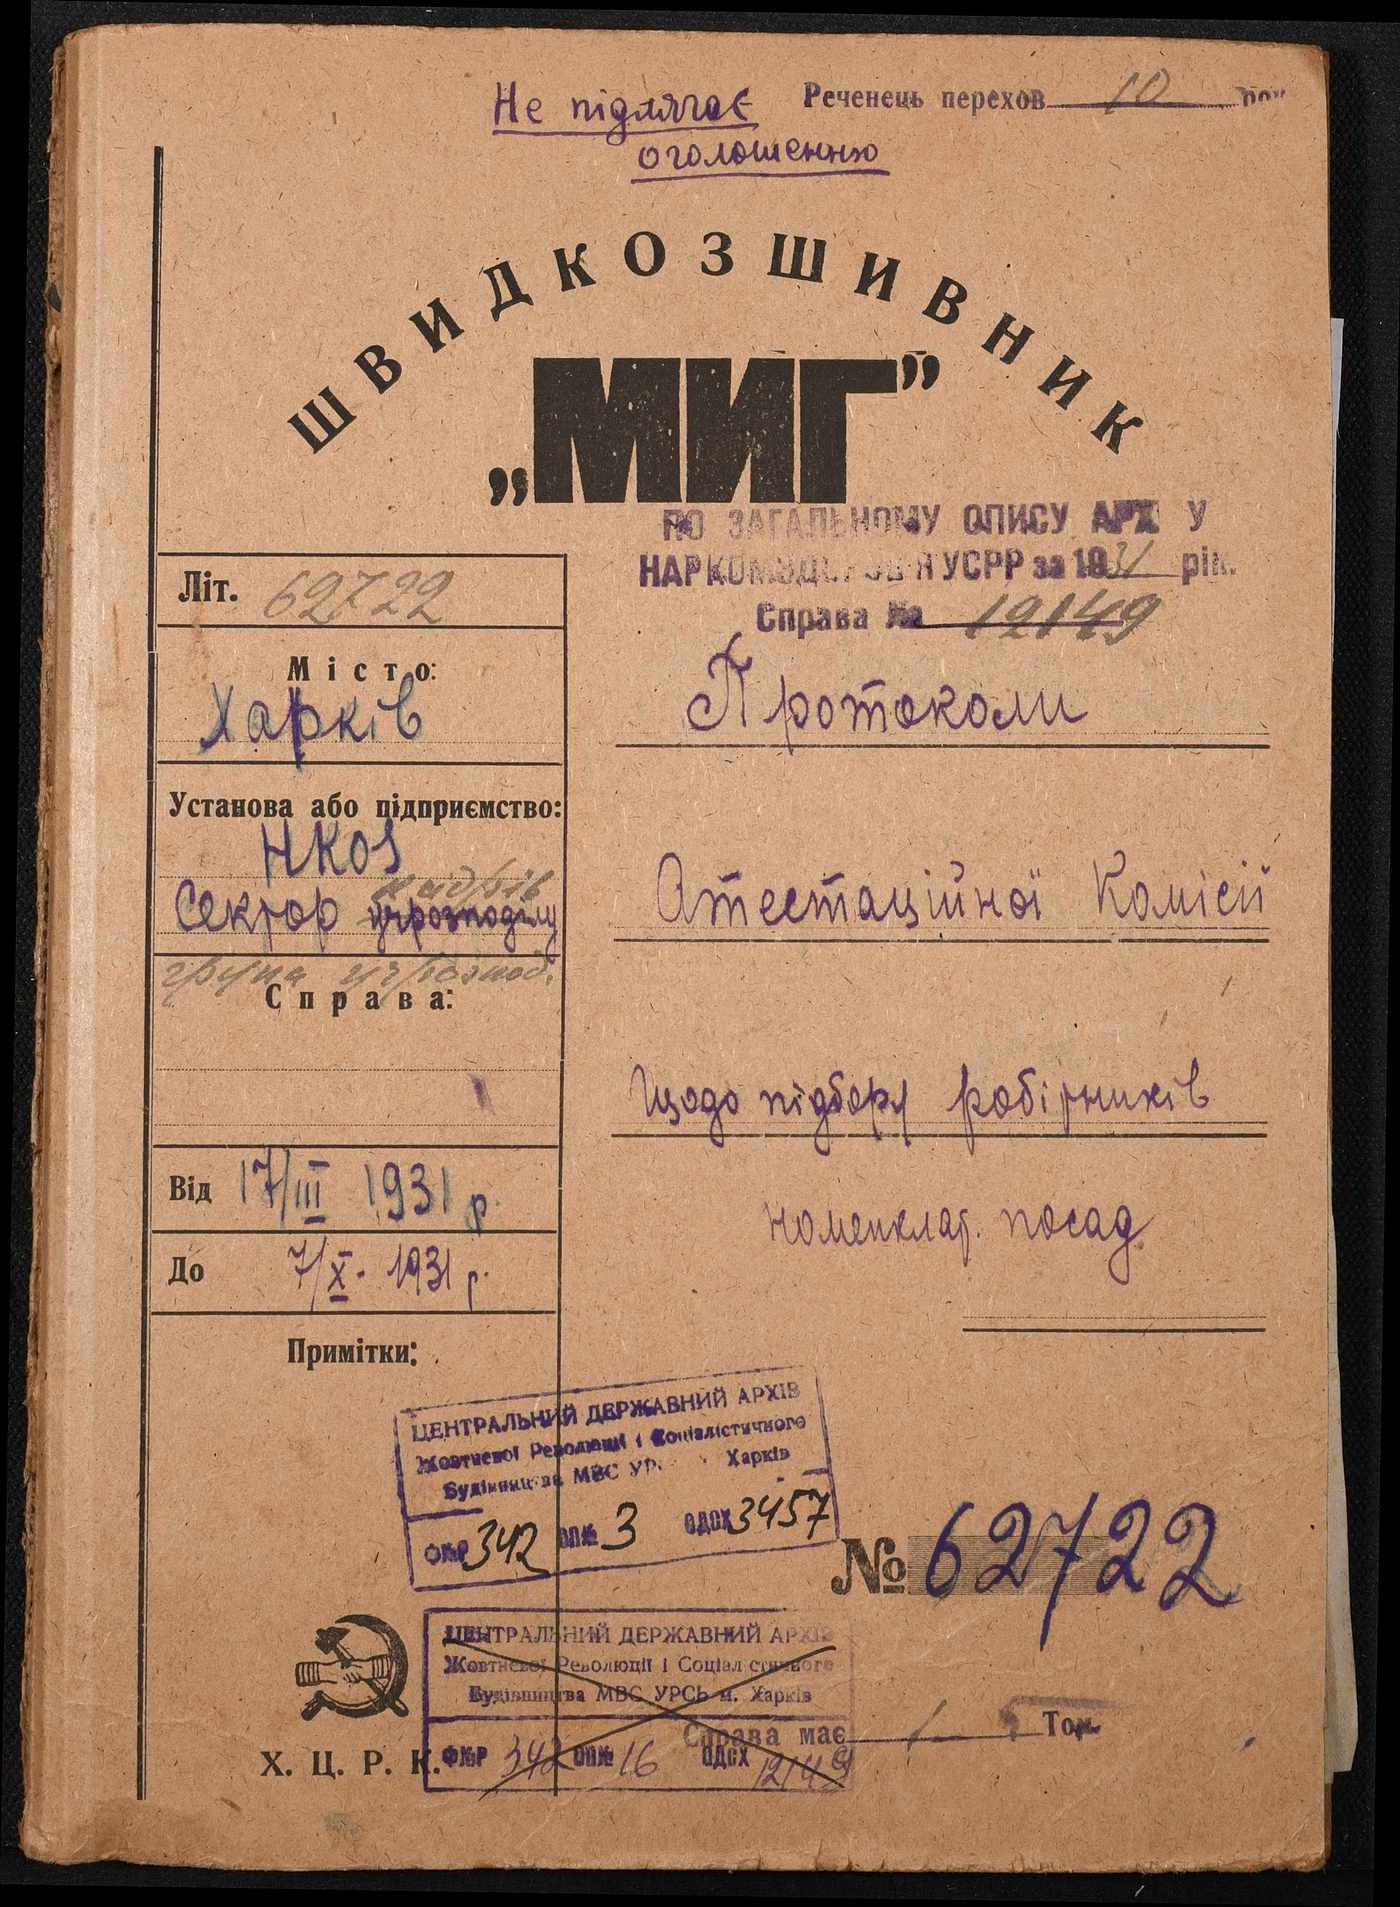 Не підлягає
оголошенню
Реченець перехов. 10 рок
ШВИДКОЗШИВНИК
„МИГ”
ПО ЗАГАЛЬНОМУ ОПИСУ АРХ У
НАРКОМЗДОРОВ'Я УСРР за 1931 рік.
Справа № 12149
Літ. 62722
Місто:
Харків
Установа або підприємство:
НКОЗ
кадрів
Сектор учрозподілу
група учрозпод.
Справа:
Від 17/III 1931 р.
До 7/X. 1931 р.
Примітки:
Протоколи
Атестаційної Комісії
Щодо підбору робітників
номенклат. посад
ЦЕНТРАЛЬНИЙ ДЕРЖАВНИЙ АРХІВ
Жовтневої Революції і Соціалістичного
Будівництва МВС УРСР Харків
Ф№Р 342 ОП№ 3 ОДСХ 3457
№ 62722
ЦЕНТРАЛЬНИЙ ДЕРЖАВНИЙ АРХІВ
Жовтневої Революції і Соціалістичного
Будівництва МВС УРСР м. Харків
Ф№Р 342 ОП№ 16 ОДСХ 12149
Справа має 1 Том
Х. Ц. Р. К.